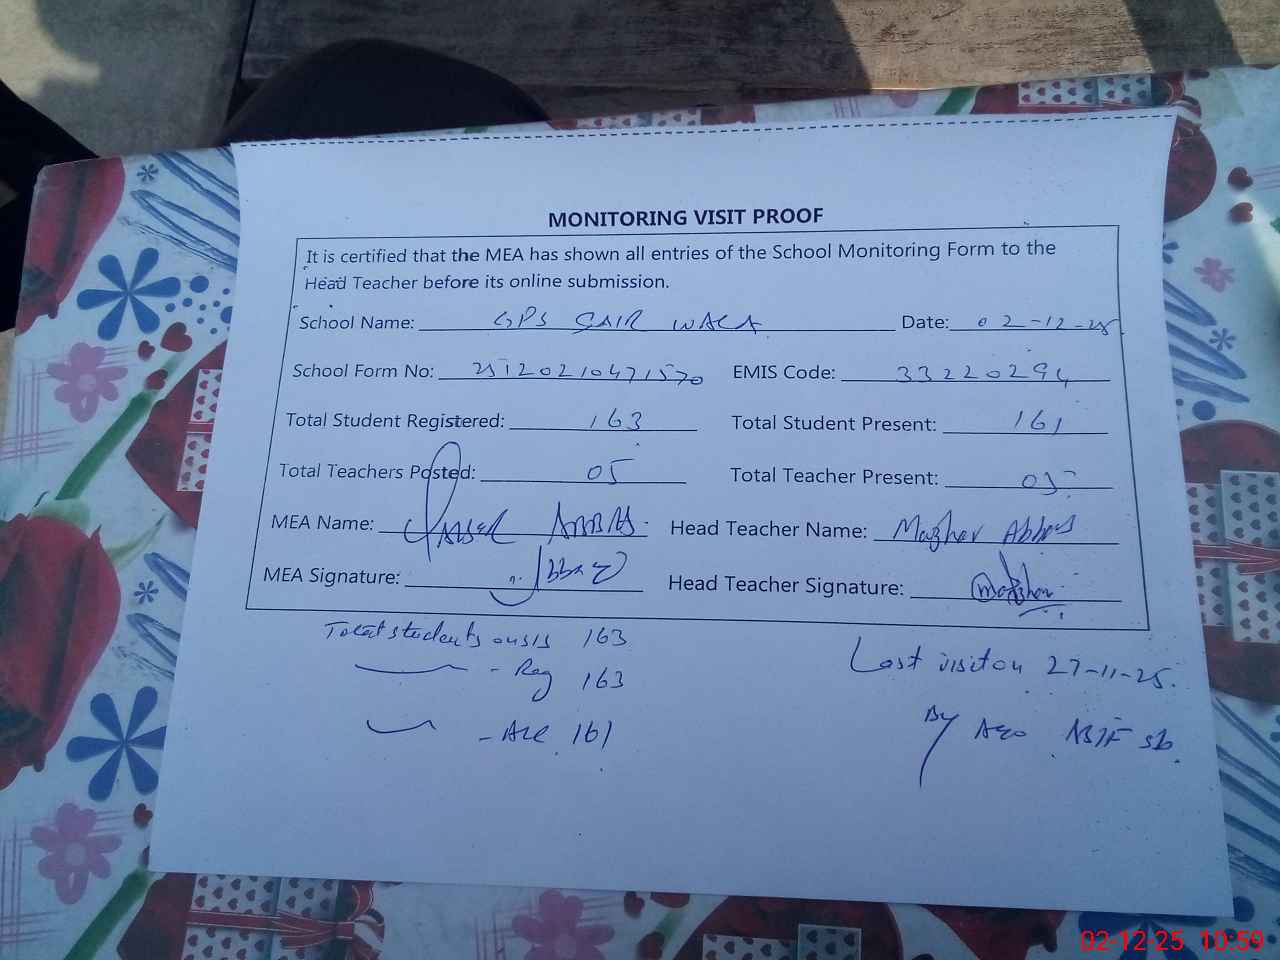 MONITORING VISIT PROOF
It is certified that the MEA has shown all entries of the School Monitoring Form to the
Head Teacher before its online submission.
School Name: GPS GAIR WALA Date: 02-12-25
School Form No: EMIS Code: 33220294
Total Student Registered: 163 Total Student Present: 161
Total Teachers Posted: 05 Total Teacher Present: 05
MEA Name: YASSER ABBAS Head Teacher Name: Mazhar Abbas
MEA Signature: Head Teacher Signature: Mazhar
Total students on SIS 163
- Reg 163
161
Last visit on 27-11-25.
By AEO sb
02-12-25 10:59